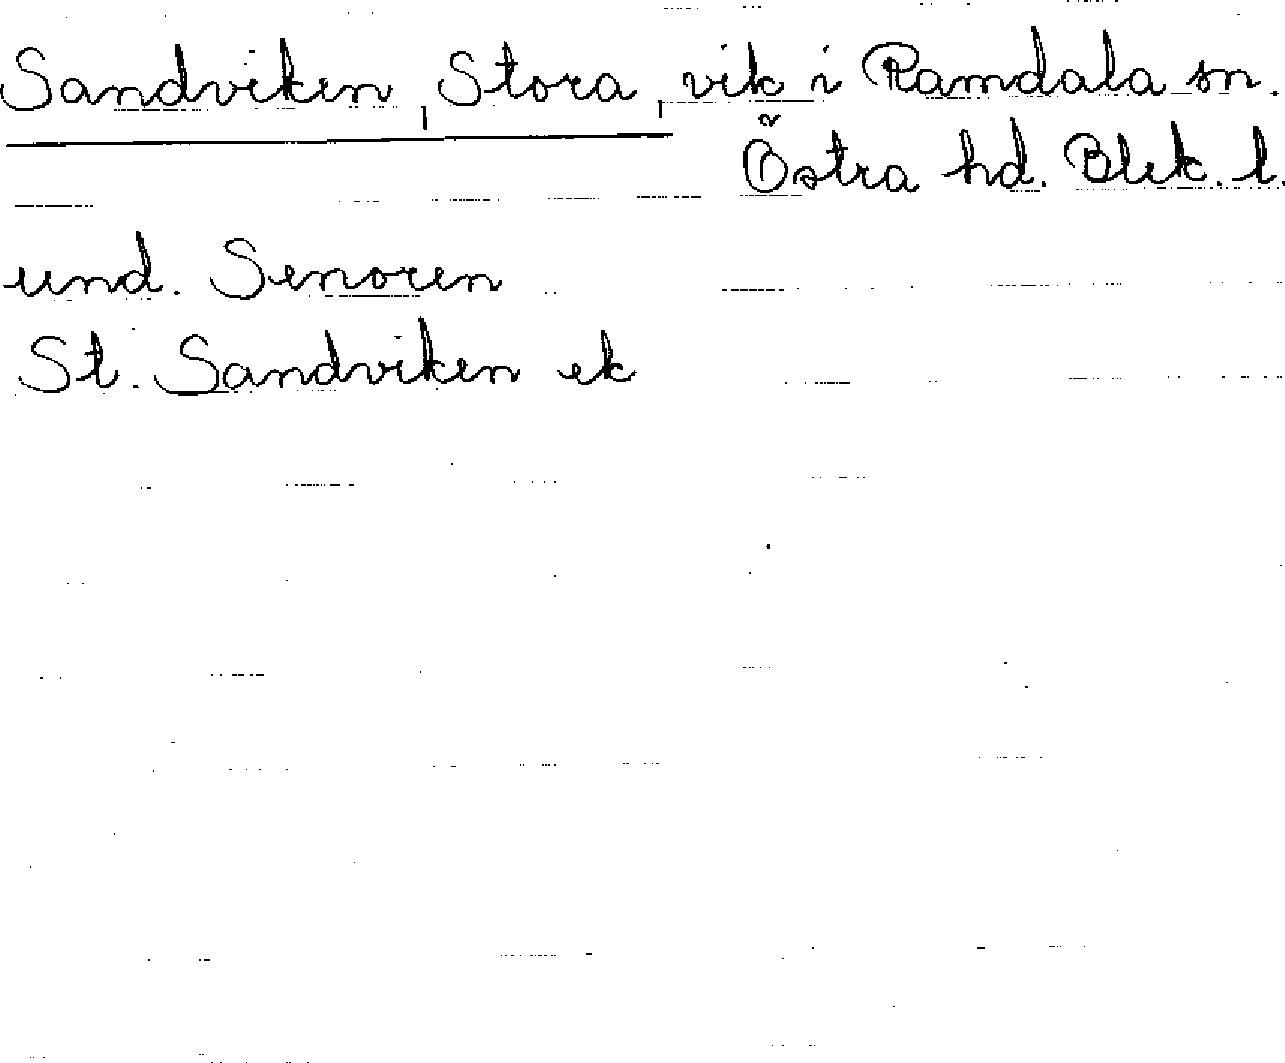 Sandviken, Stora, vik i Ramdala sn.
Östra hd. Blek. l.
und. Senoren
St. Sandviken ek